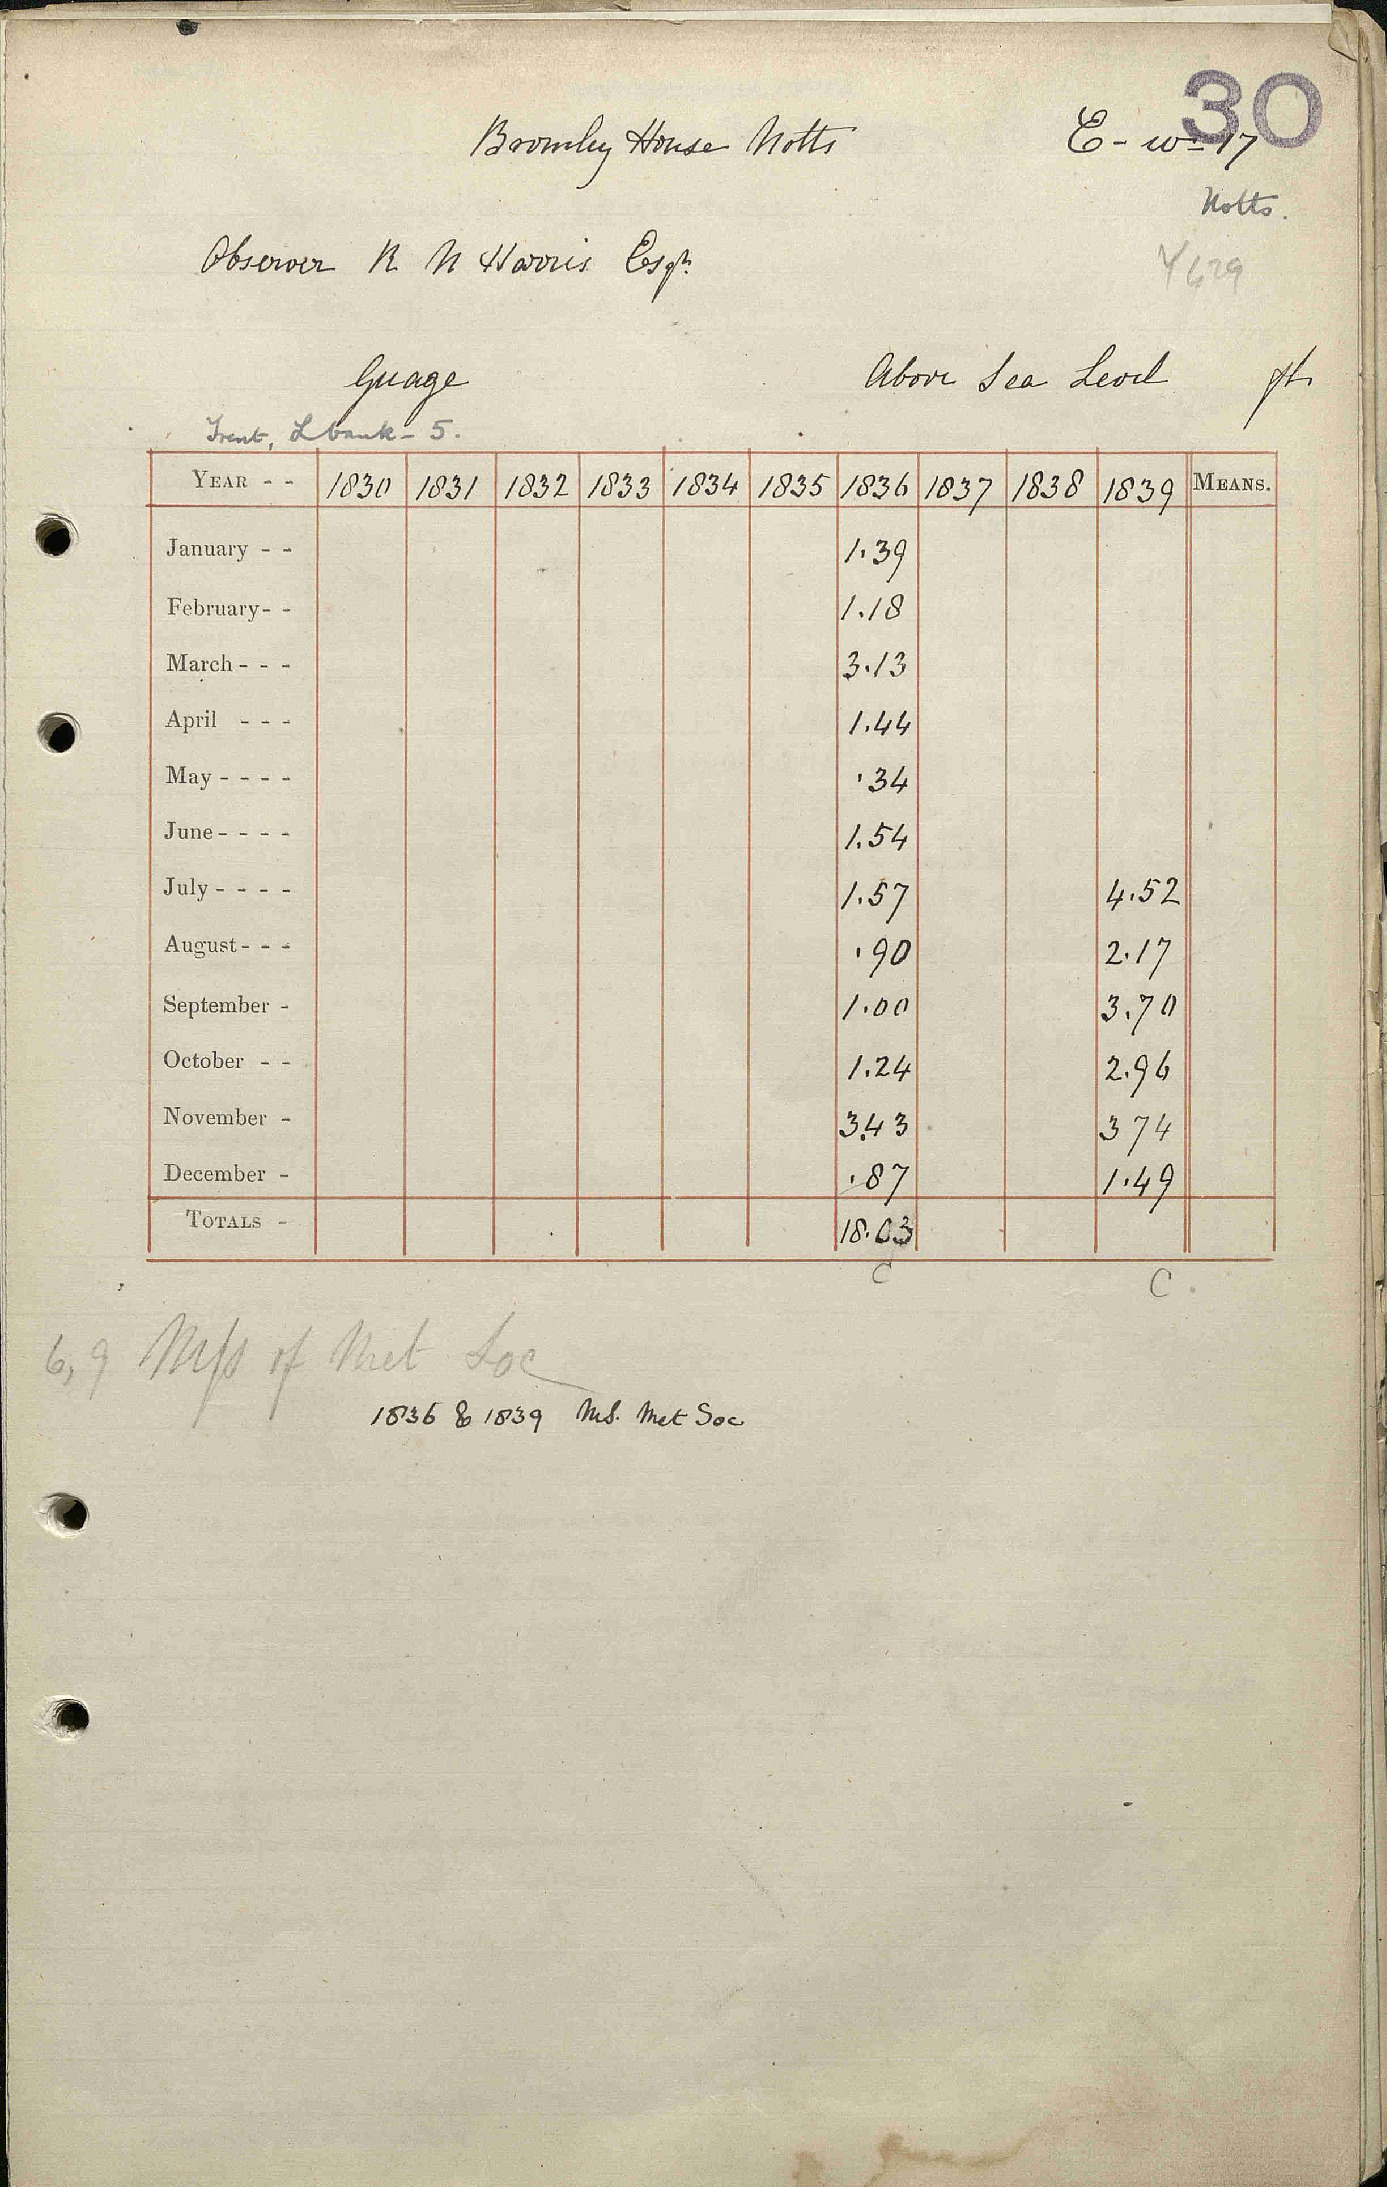 30
Bromley House Notts E - w - 17
Notts.
Observer R N Harris Esqr
Guage Above Sea Level ft
Trent, L bank - 5.
YEAR - - 1830 1831 1832 1833 1834 1835 1836 1837 1838 1839 MEANS.
January - - 1.39
February - - 1.18
March - - - 3.13
April - - - 1.44
May - - - - .34
June - - - - 1.54
July - - - - 1.57 4.52
August - - - .90 2.17
September - 1.00 3.70
October - - 1.24 2.96
November - 3.43 3 74
December - .87 1.49
TOTALS - 18.03
C C.
6, 9 Mss of Met Soc
1836 & 1839 MS. Met Soc